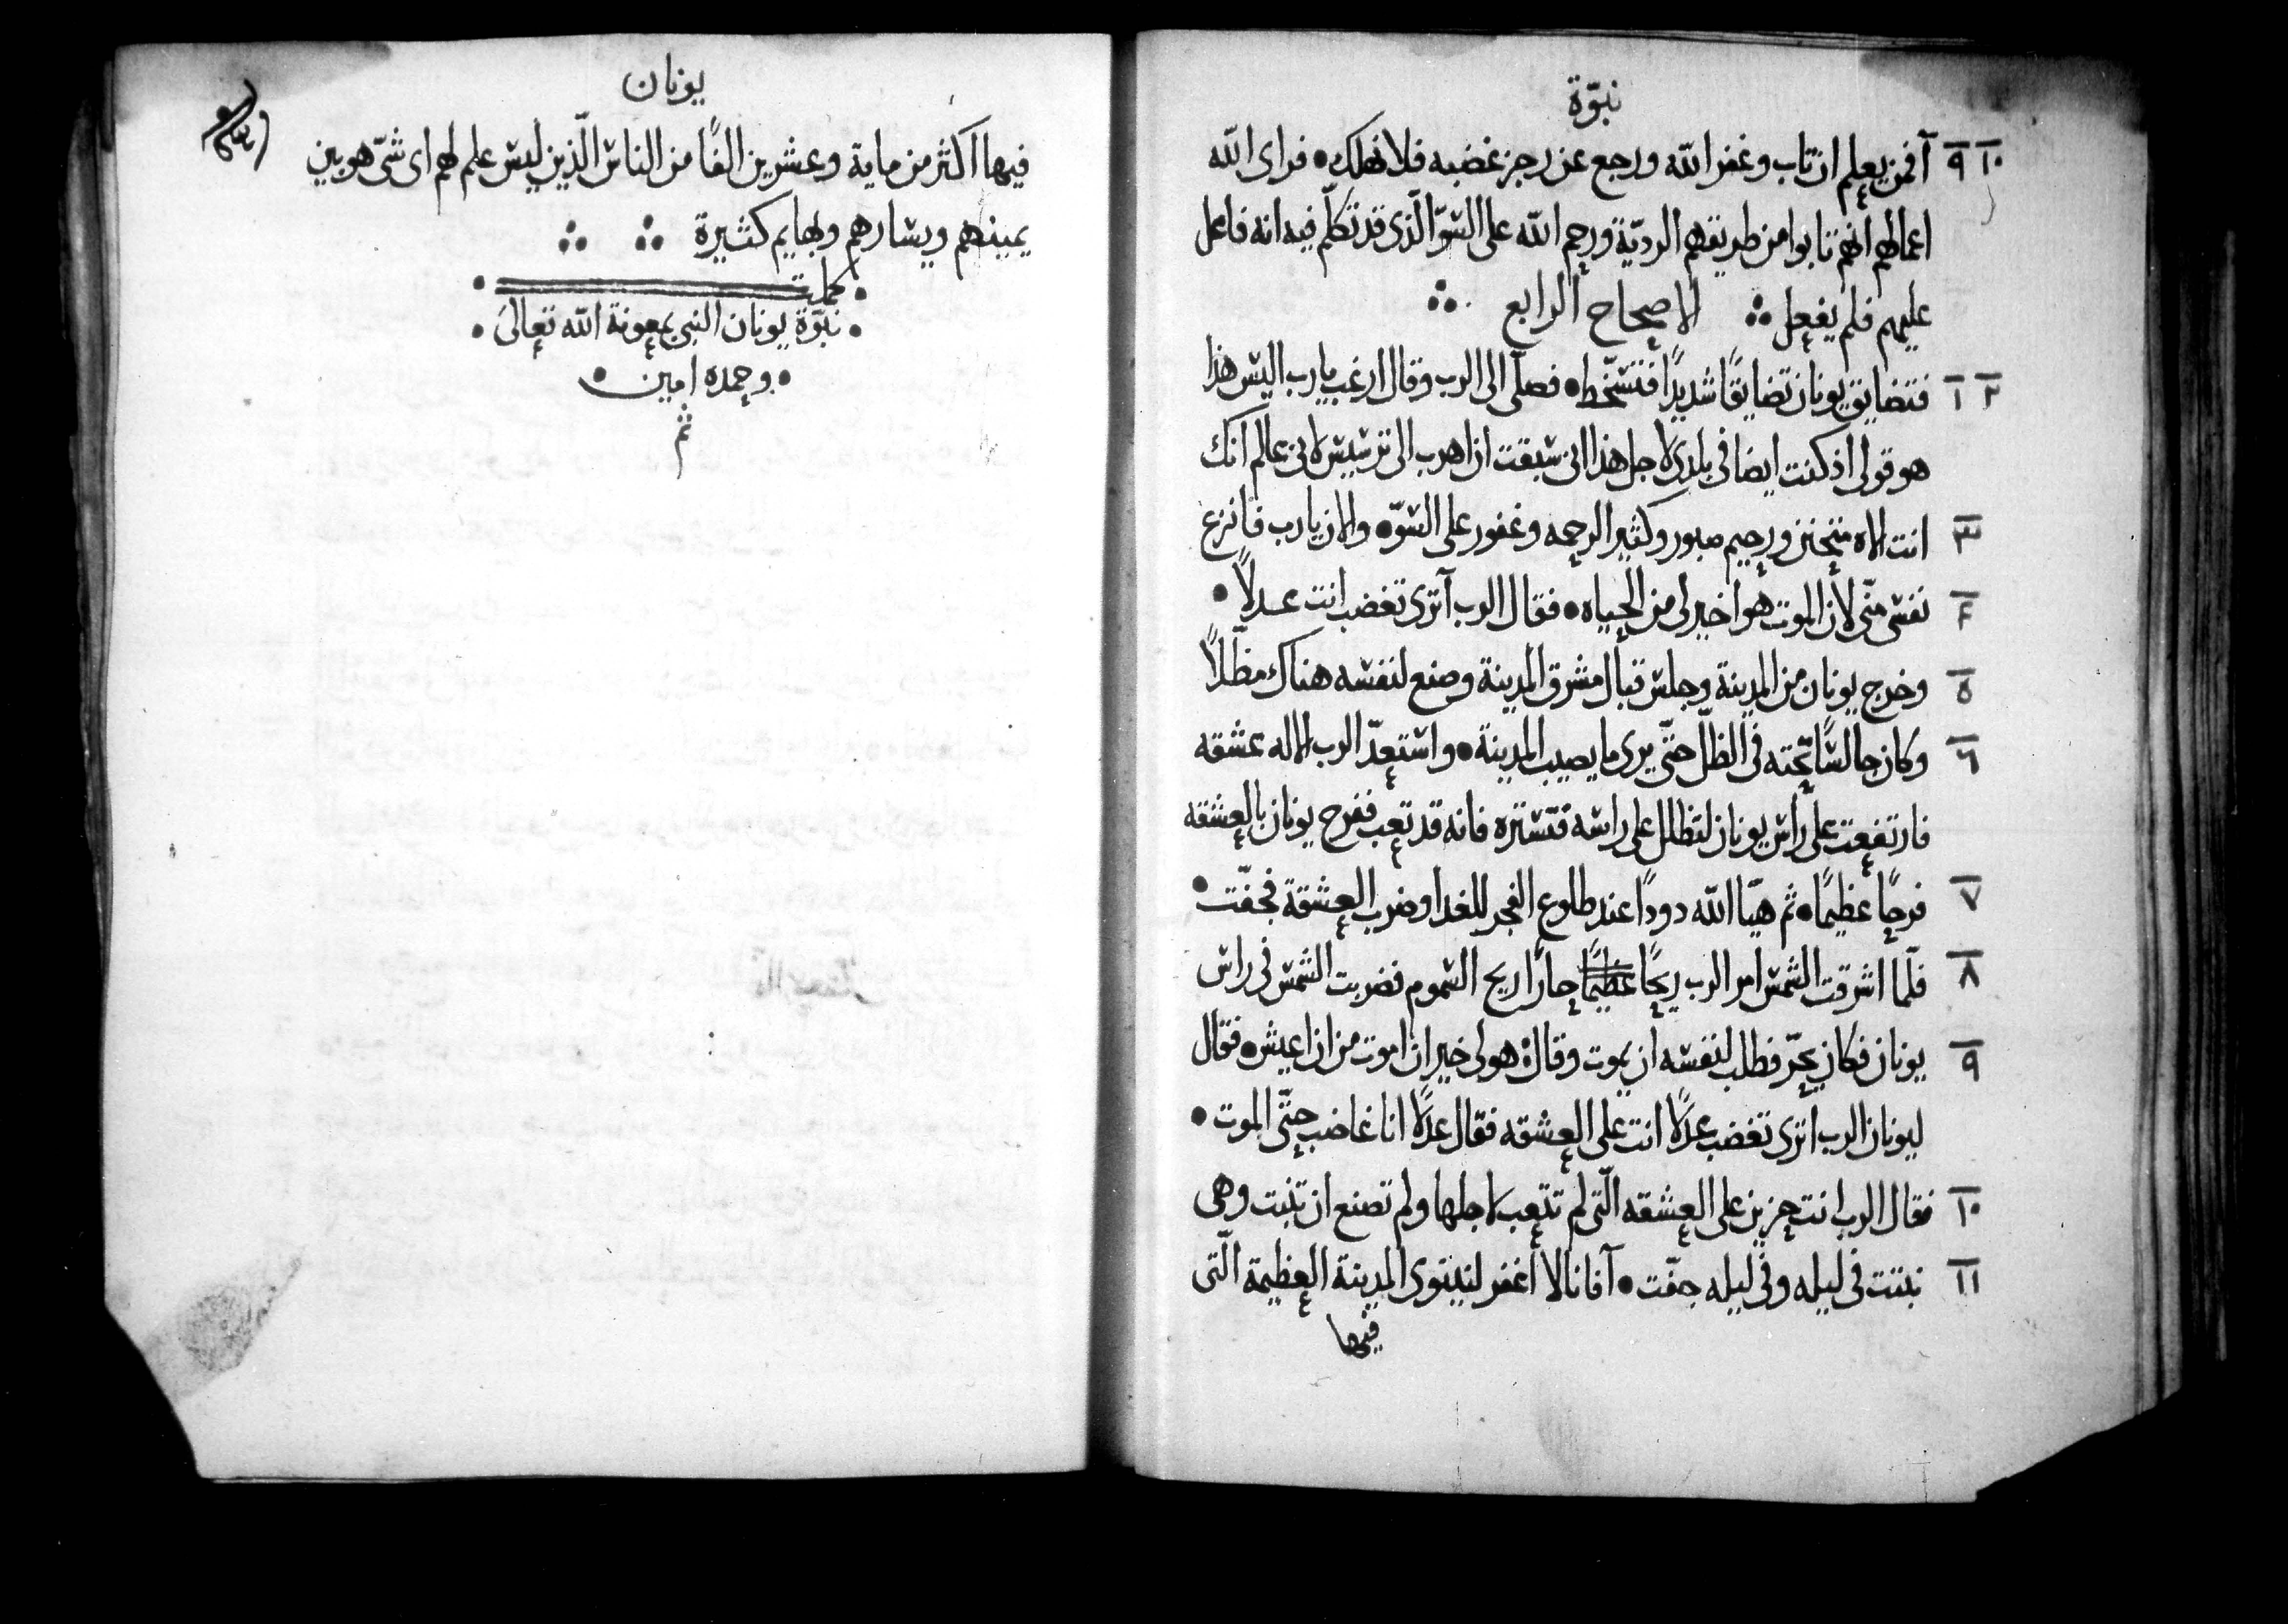 نبوّة
٩ ١٠ آفمن يعلم ان تاب وغفر الله ورجع عن رجز غضبه فلا نهلك • فراى الله
اعمالهم انهم تابوا من طريقهم الرديّة ورحم الله على السّوّ الّذى قد تكلّم فيه انه فاعل
عليهم فلم يفعل ∴ الاصحاح الرابع ∴
١ ٢ فتضايق يونان تضايقًا شديدًا فتسخّط • فصلّى الى الرب وقال ارغب يا رب اليس هذا
هو قولى اذ كنت ايضا فى بلدى لاجل هذا انى سبقت ان اهرب الى ترسيس لانى عالم انك
٣ انت الاه متحنن ورحيم صبور وكثير الرحمه وغفور على السّوّ • والان يا رب فانزع
٤ نفسى منّى لأن الموت هو اخير لى من الحياه • فقال الرب آترى تغضب انت عدلاً •
٥ وخرج يونان من المدينة وجلس قبال مشرق المدينة وصنع لنفسه هناك مظلّلاً
٦ وكان جالسًا تحته فى الظلّ حتّى يرى ما يصيب المدينة • واستعدّ الرب الاله عشقه
فارتفعت على راس يونان لتظلل على راسه فتستره فانه قد تعب ففرح يونان بالعشقه
٧ فرحًا عظيمًا • ثم هيّا الله دودًا عند طلوع الفجر للغد وضرب العشقة فجفّت •
٨ فلمّا اشرقت الشمس امر الرب ريحًا عظيمًا حارًا ريح السموم فضربت الشمس فى راس
٩ يونان فكان يحرّ فطلب لنفسه ان يموت وقال هو لى خير ان اموت من ان اعيش • فقال
ليونان الرب اترى تغضب عدلًا انت على العشقه فقال عدلًا انا غاضب حتّى الموت •
١٠ فقال الرب انت حزين على العشقه الّتى لم تتعب لاجلها ولم تصنع ان تنبت وهى
١١ نبتت فى ليله وفى ليله جفّت • آفانا لا اغفر لنينوى المدينة العظيمة الّتى
فيها
يونان
فيها اكثر من ماية وعشرين الفًا من الناس الّذين ليس علم لهم اى شىّ هو بين
يمينهم ويسارهم وبهايم كثيرة ∴ ∴
• كملت •
• نبوّة يونان النبى بمعونة الله تعالى •
• وحمده امين •
تم